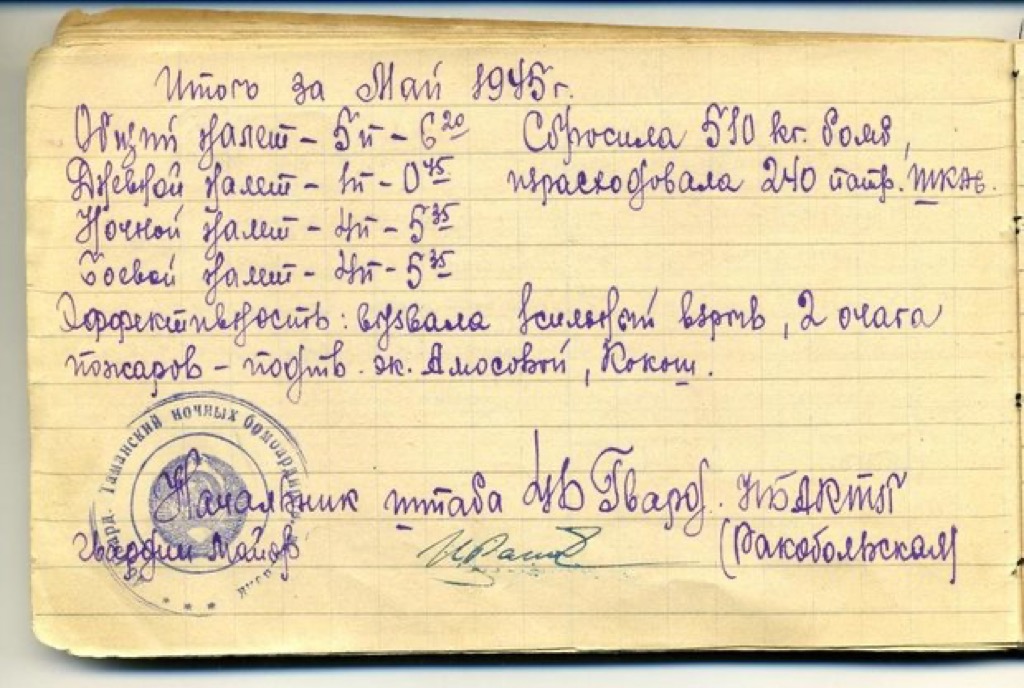 Итог за Май 1945г.
Общий налет - 5п - 6 20
Дневной налет - 1п - 0 45
Ночной налет - 4п - 5 35
Боевой налет - 4п - 5 35
Сбросила 510 кг. бомб,
израсходовала 240 патр. ШКАС.
Эффективность: вызвала 1 сильный взрыв, 2 очага
пожаров - подтв. эк. Амосовой, Кокош.
Таманский ночных
Начальник штаба 46 Гвард. НБАКТП
Гвардии Майор
(Ракобольская)